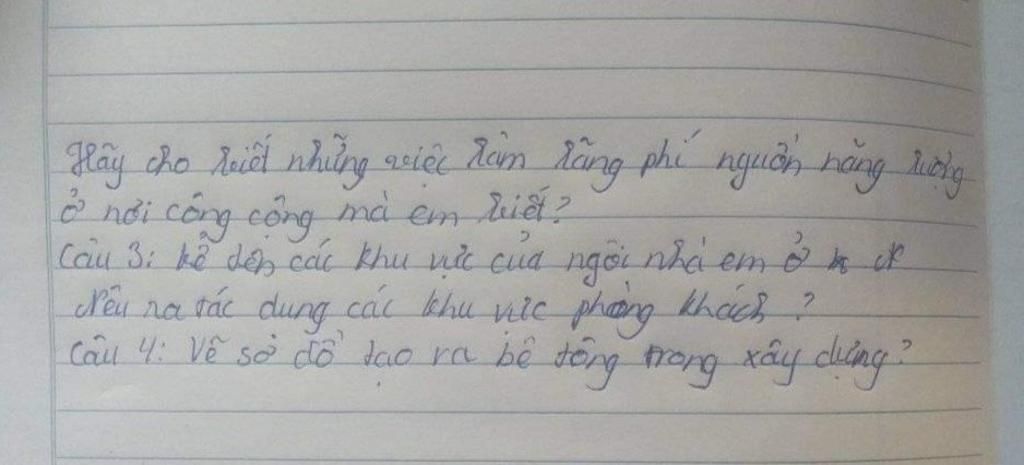 Hãy cho biết những việc làm lãng phí nguồn năng lượng
ở nơi công cộng mà em biết?
Câu 3: kể tên các khu vực của ngôi nhà em ở
Nêu ra tác dụng các khu vực phòng khách?
Câu 4: Vẽ sơ đồ tạo ra bê tông trong xây dựng?